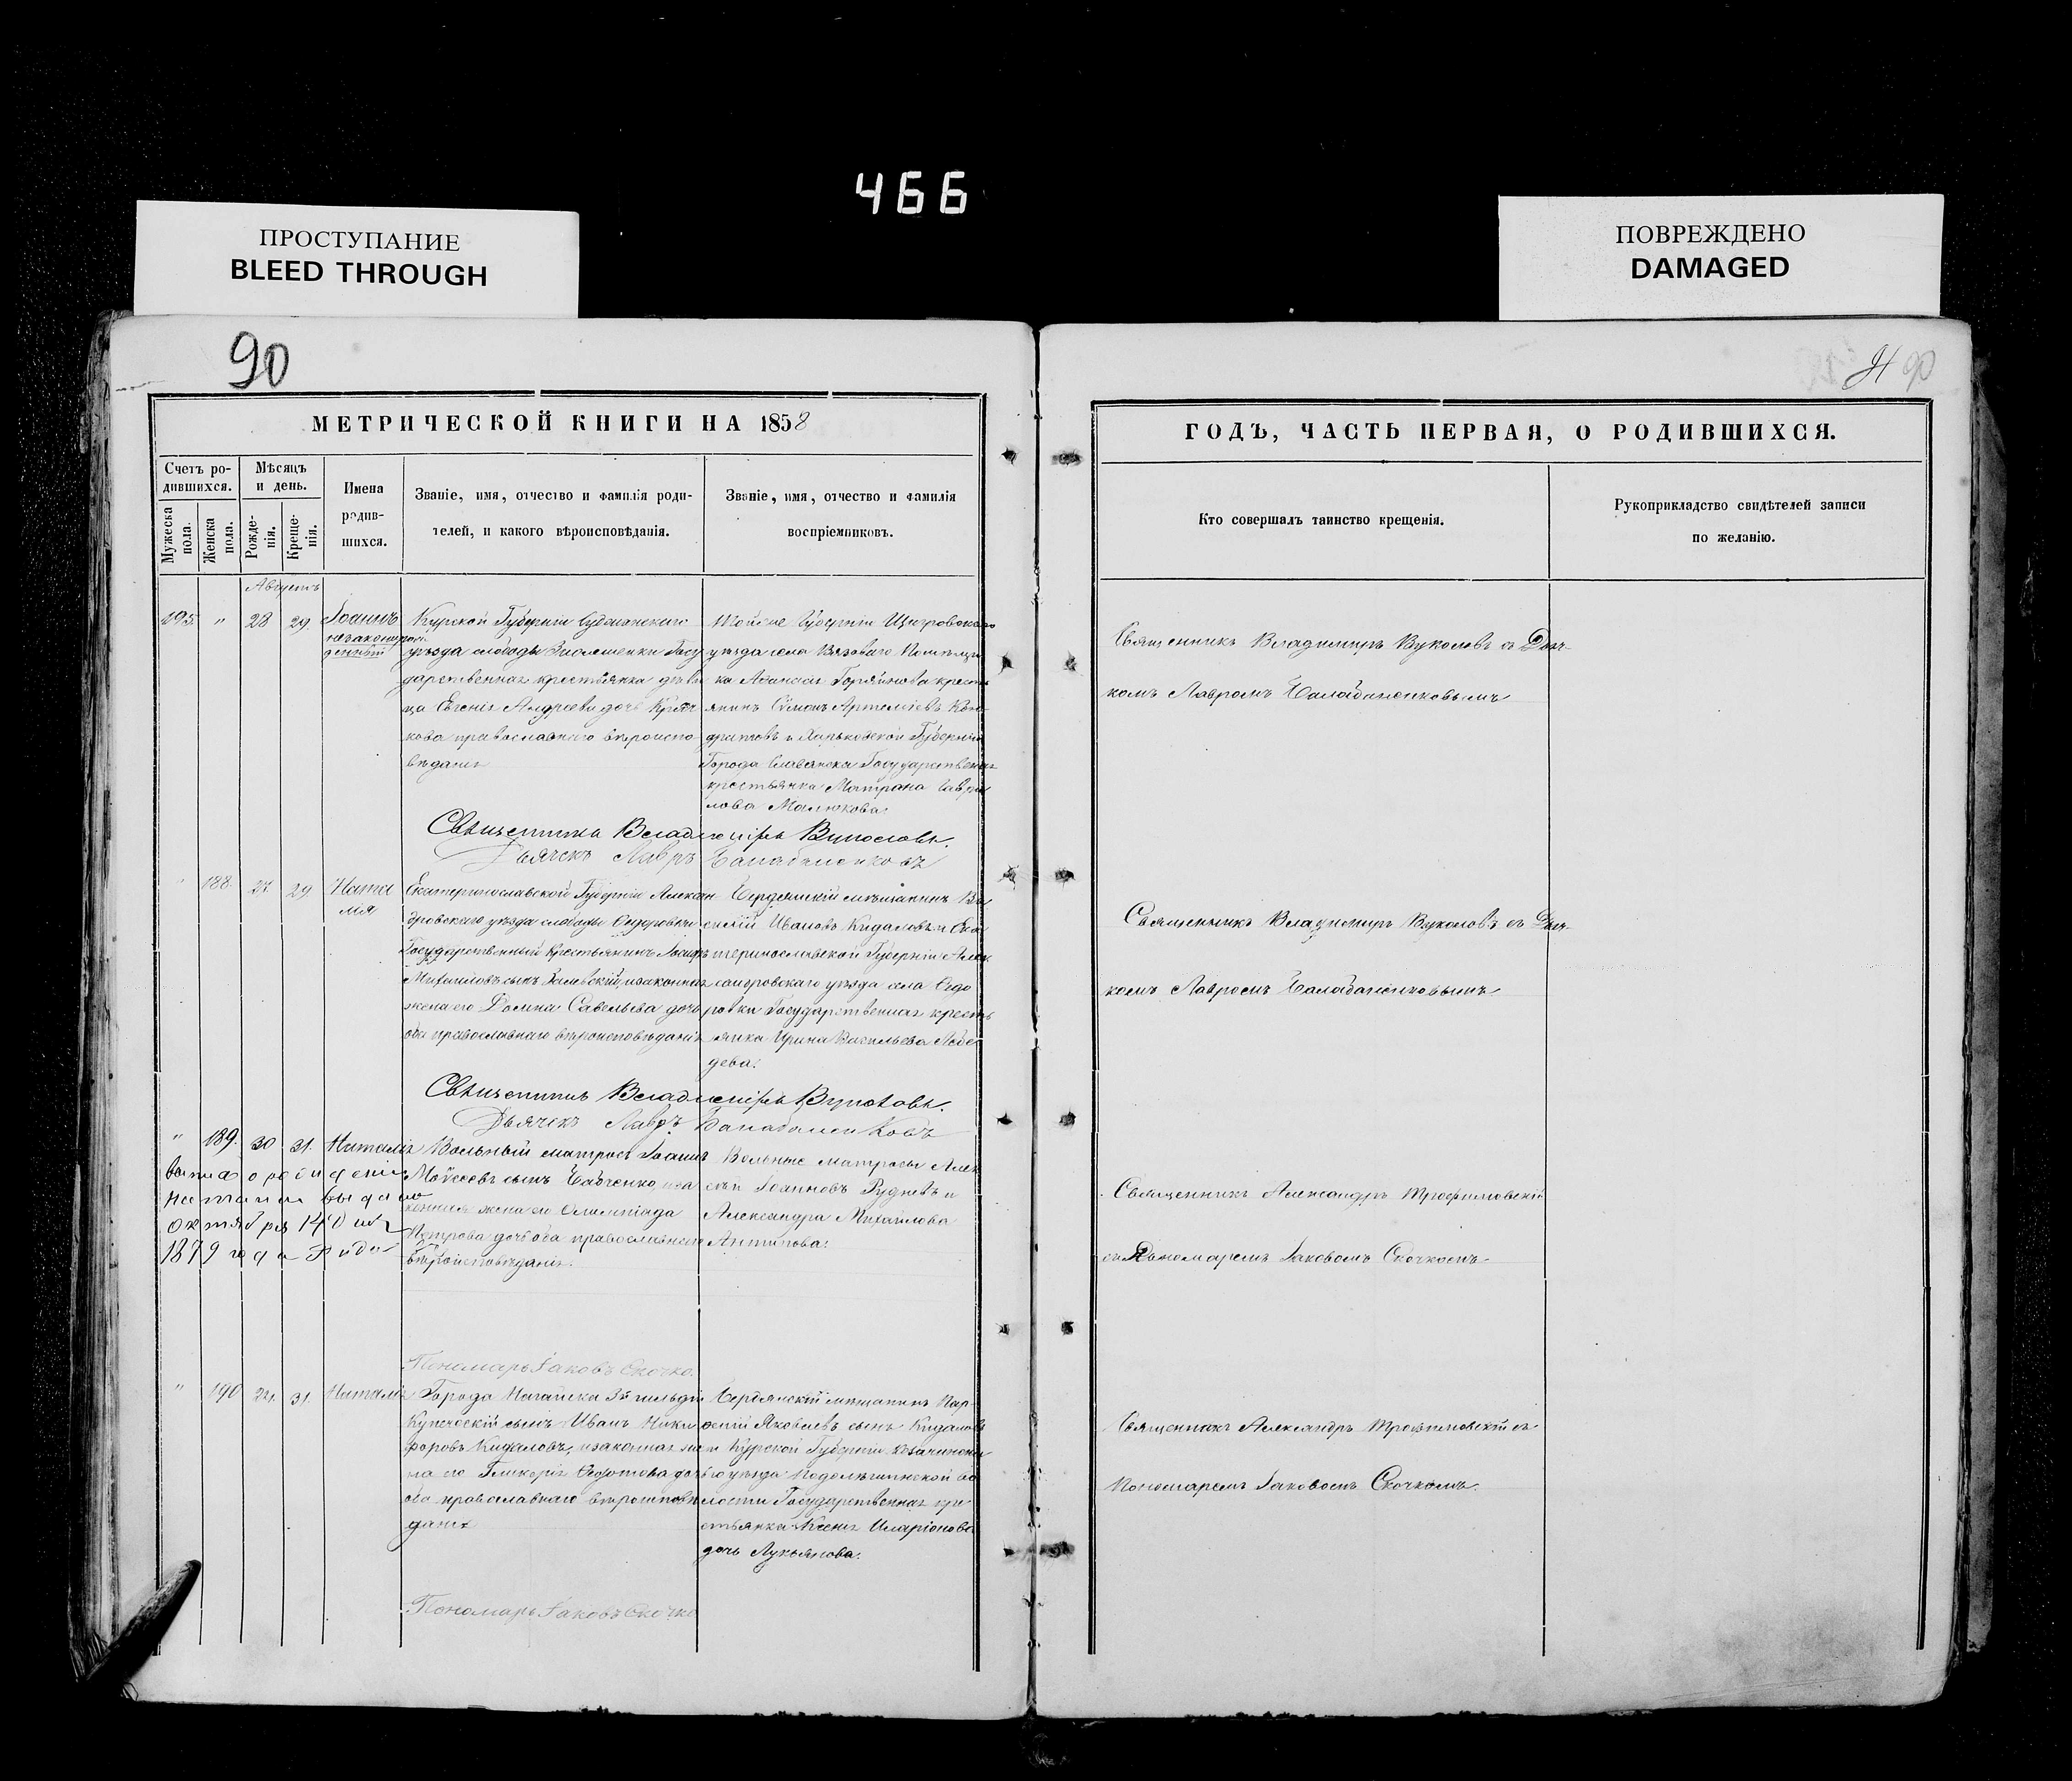 466
ПРОСТУПАНИЕ
BLEED THROUGH
ПОВРЕЖДЕНО
DAMAGED
90
МЕТРИЧЕСКОЙ КНИГИ НА 1858
Счетъ ро-
дившихся.
Мужеска пола.
Женска пола.
Мѣсяцъ
и день.
Рожде-
нія.
Креще-
нія.
Имена
родив-
шихся.
Званіе, имя, отчество и фамилія роди-
телей, и какого вѣроисповѣданія.
Званіе, имя, отчество и фамилія
воспріемниковъ.
Августъ
195. " 28 29. Іоаннъ
незаконорож
денный
Курской Губерніи Суджанскаго
уѣзда слободы Госу
дарственная крестьянка дѣви
ца Евгенія Андреева дочь
кова православнаго вѣроиспо
вѣданія
Тойже Губерніи Щигровскаго
уѣзда села Вязоваго Помѣщи
ка Горяинова кресть
янинъ Симонъ Артеміевъ Кон
дратовъ и Харьковской Губерніи
Города Славянска Государственная
крестьянка Матрона Гаври
лова Малюкова.
Священникъ Владиміръ Вуколовъ.
Дьячекъ Лавръ Балабаненковъ
" 188. 27. 29. Ната
лія
Екатеринославской Губерніи Алексан
дровскаго уѣзда слободы Ѳедоровки
Государственный Крестьянинъ Іосифъ
Михайловъ сынъ и законная
жена его Домна Савельева дочь
оба православнаго вѣроисповѣданія
Бердянскій мѣщанинъ Ва
силій Ивановъ Кидаловъ и Ека
теринославской Губерніи Алек
сандровскаго уѣзда села Ѳедо
ровки Государственная кресть
янка Ирина Васильева Лебе
дева.
Священникъ Владиміръ Вуколовъ.
Дьячекъ Лавръ Балабаненковъ
" 189. 30 31. Наталія
Выпис о рожденіи
Наталіи выдано
октября 14 дня
1879 года
Вольный матросъ Іоаннъ
Мойсеевъ сынъ Бабченко, и за
конная жена его Олимпіада
Петрова дочь оба православнаго
вѣроисповѣданія.
Вольные матросы Алек
сѣй Іоанновъ Рудневъ и
Александра Михайлова
Антипова.
Пономарь Іаковъ Скочко.
" 190 24. 31. Наталія
Города Ногайска 3й гильдіи
Купеческій сынъ Иванъ Ники
форовъ Кидаловъ, и законная же
на его Гликерія Ѳедотова дочь
оба православнаго вѣроисповѣ
данія
Бердянскій мѣщанинъ Пар
ѳеній Яковлевъ сынъ Кидаловъ
и Курской Губерніи
го уѣзда во
лости Государственная кре
стьянка Ксенія Иларіонова
дочь Лукьянова.
Пономарь Іаковъ Скочко
90
ГОДЪ, ЧАСТЬ ПЕРВАЯ, О РОДИВШИХСЯ.
Кто совершалъ таинство крещенія.
Рукоприкладство свидѣтелей записи
по желанію.
Священникъ Владиміръ Вуколовъ съ Дьяч-
комъ Лавромъ Балабаненковымъ
Священникъ Владиміръ Вуколовъ съ Дьяч-
комъ Лавромъ Балабаненковымъ
Священникъ Александръ Трофимовскій
съ Пономаремъ Іаковомъ Скочкомъ
Священникъ Александръ Трофимовскій съ
Пономаремъ Іаковомъ Скочкомъ.